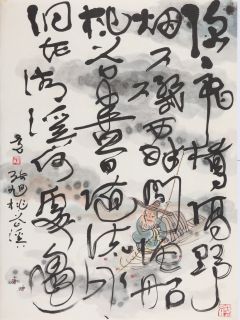 隱々飛橋隔野
烟石磯西畔問漁船
桃花盡日随流水
洞在清溪何處邊
張旭桃花溪